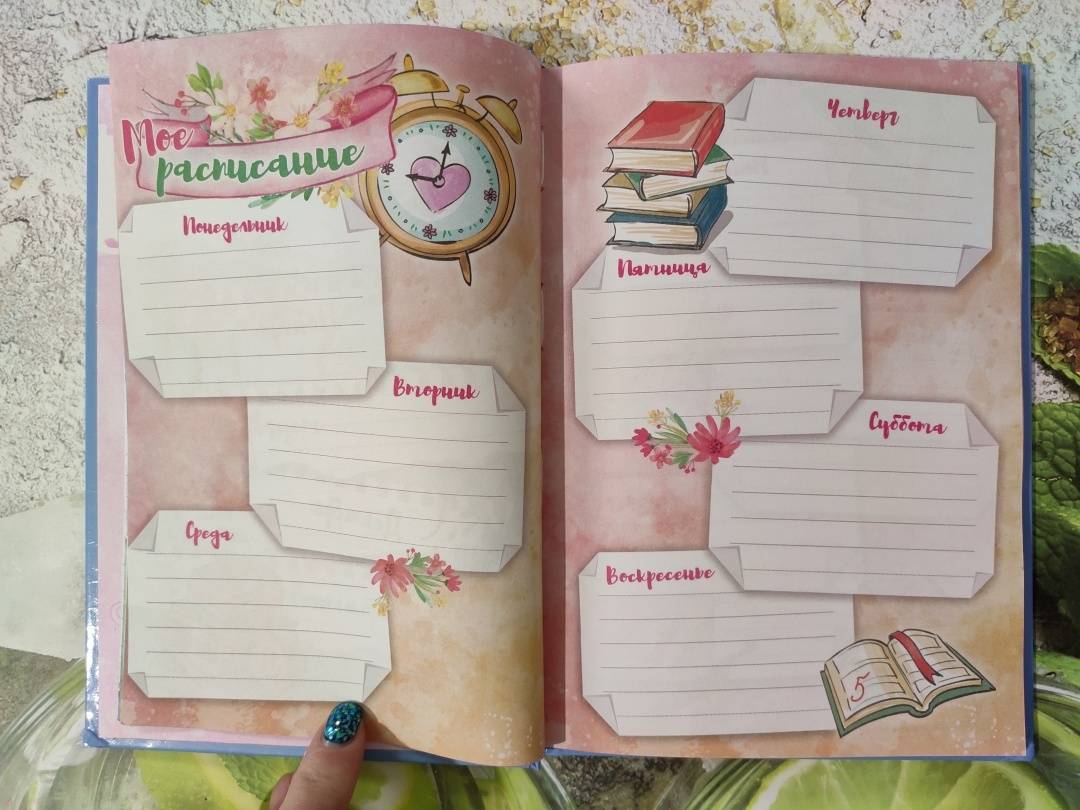 Мое
расписание
Понедельник
Вторник
Среда
Четверг
Пятница
Суббота
Воскресенье
5